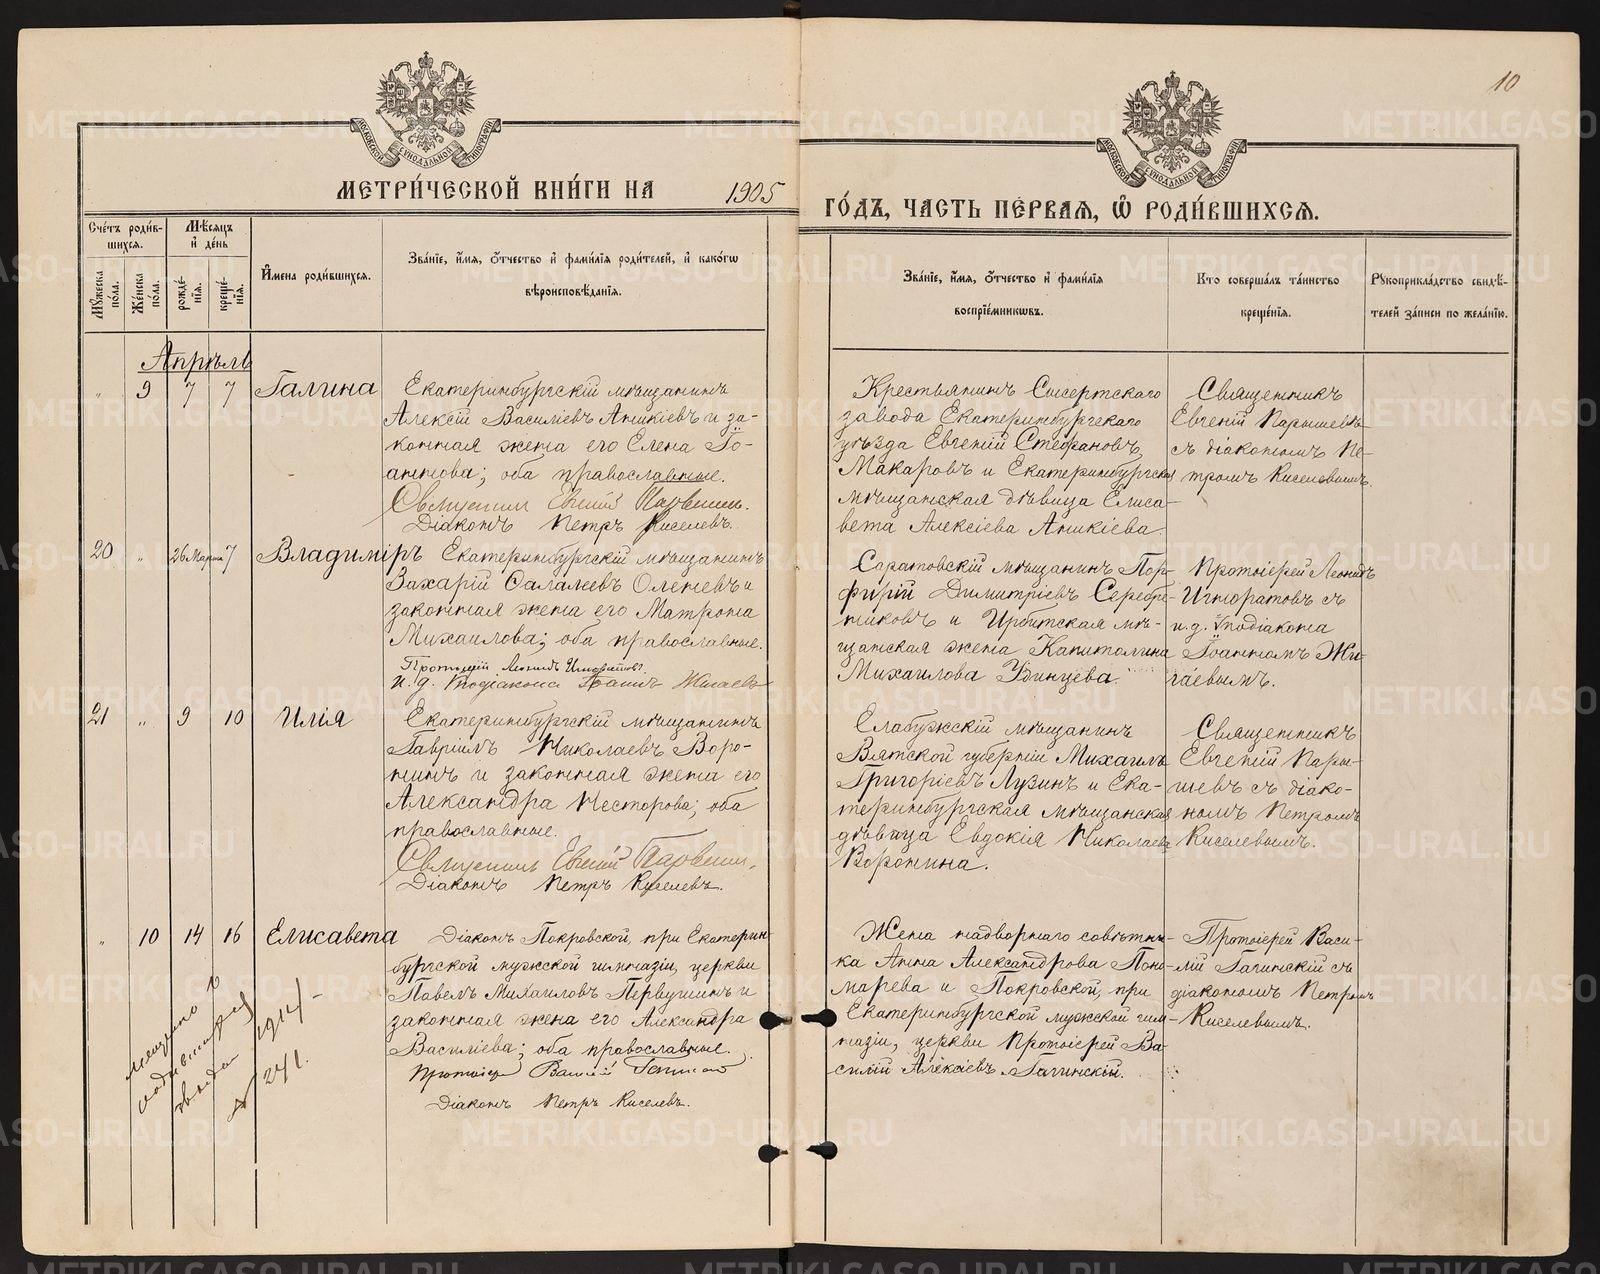 10
МЕТРИ́ЧЕСКОЙ КНИ́ГИ НА 1905
ГО́ДЪ, ЧАСТЬ ПЕ́РВАЯ, Ѿ РОДИ́ВШИХСЯ.
МОСКОВСКОЙ СУНОДАЛЬНОЙ ТИПОГРАФІИ
МОСКОВСКОЙ СУНОДАЛЬНОЙ ТИПОГРАФІИ
Сче́тъ роди́в-
шихся.
Мѣ́сяцъ
и҆ де́нь
Му́жеска
по́ла.
Же́нска
по́ла.
рожде́-
нія.
креще́-
нія.
И҆мена роди́вшихся.
Зва́ніе, и҆́мя, ѻ҆́тчество и҆ фами́лія роди́телей, и҆ како́гѡ
вѣроисповѣ́данія.
Зва́ніе, и҆́мя, ѻ҆́тчество и҆ фами́лія
воспріе́мникѡвъ.
Кто соверша́лъ та́инство
креще́нія.
Рукоприкла́дство свидѣ́-
телей за́писи по жела́нію.
Апрѣль
" 9 7 7 Галина
Екатеринбургскій мѣщанинъ
Алексій Василіевъ Аникіевъ и за-
конная жена его Елена Іо-
аннова; оба православные.
Священникъ Евгеній Парышевъ.
Діаконъ Петръ Киселевъ.
Крестьянинъ Сысертскаго
завода Екатеринбургскаго
уѣзда Евгеній Стефановъ
Макаровъ и Екатеринбургская
мѣщанская дѣвица Елиса-
вета Алексіева Аникіева.
Священникъ
Евгеній Парышевъ
съ діакономъ Пе-
тромъ Киселевымъ.
20 " 26 Марта 7 Владиміръ
Екатеринбургскій мѣщанинъ
Захарій Савлеевъ Оленевъ и
законная жена его Матрона
Михаилова; оба православные.
Протоіерей Леонидъ Игноратовъ
и. д. Иподіакона Іоаннъ Жигаевъ
Саратовскій мѣщанинъ Пор-
фирій Димитріевъ Серебре-
никовъ и Ирбитская мѣ-
щанская жена Капитолина
Михаилова Удинцева.
Протоіерей Леонидъ
Игноратовъ съ
и.д. Иподіакона
Іоанномъ Жи-
гаевымъ.
21 " 9 10 Илія
Екатеринбургскій мѣщанинъ
Гавріилъ Николаевъ Воро-
нинъ и законная жена его
Александра Несторова; оба
православные.
Священникъ Евгеній Парышевъ.
Діаконъ Петръ Киселевъ.
Елабужскій мѣщанинъ
Вятской губерніи Михаилъ
Григоріевъ Лузинъ и Ека-
теринбургская мѣщанская
дѣвица Евдокія Николаева
Воронина.
Священникъ
Евгеній Пары-
шевъ съ діако-
номъ Петромъ
Киселевымъ.
" 10 14 16 Елисавета
Діаконъ Покровской, при Екатерин-
бургской мужской гимназіи, церкви
Павелъ Михаиловъ Первушинъ и
законная жена его Александра
Василіева; оба православные.
Протоіерей Василій Гагинскій
Діаконъ Петръ Киселевъ.
Жена надворнаго совѣтни-
ка Анна Александрова Поно-
марева и Покровской, при
Екатеринбургской мужской гим-
назіи, церкви Протоіерей Ва-
силій Алексіевъ Гагинскій.
Протоіерей Васи-
лій Гагинскій съ
діакономъ Петромъ
Киселевымъ.
1914
№ 241.
METRIKI.GASO-URAL.RU